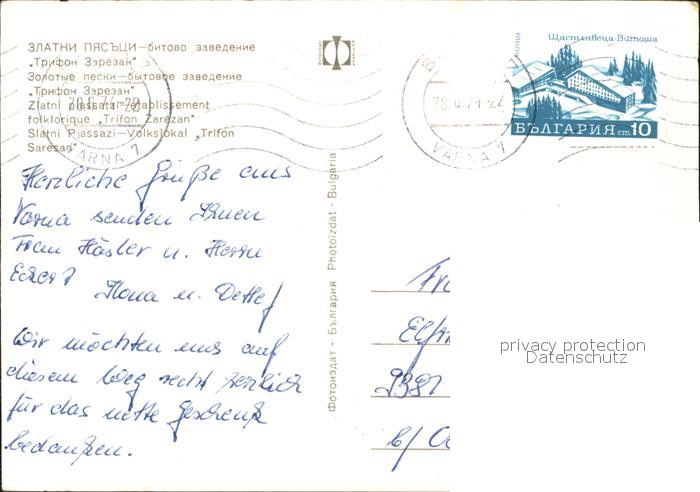 ЗЛАТНИ ПЯСЪЦИ—битово заведение
„Трифон Зарезан"
Золотые пески—бытовое заведение
„Трифон Зарезан"
Zlatni piassatzi—etablissement
folklorique „Trifon Zarezan"
Slatni Pjassazi—Volkslokal „Trifon
Saresan"
VARNA 7
28.6.74-22
VARNA 7
Щастливеца-Витоша
поща
БЪЛГАРИЯ cm 10
Herzliche Grüße aus
Varna senden Ihnen
Frau Häsler u. Herrn
Ilona u. Detlef
Wir möchten uns auf
diesem Weg recht herzlich
für das nette Geschenk
bedanken.
Фотоиздат - България Photoizdat - Bulgaria
Fr
Elfr
b/
privacy protection
Datenschutz